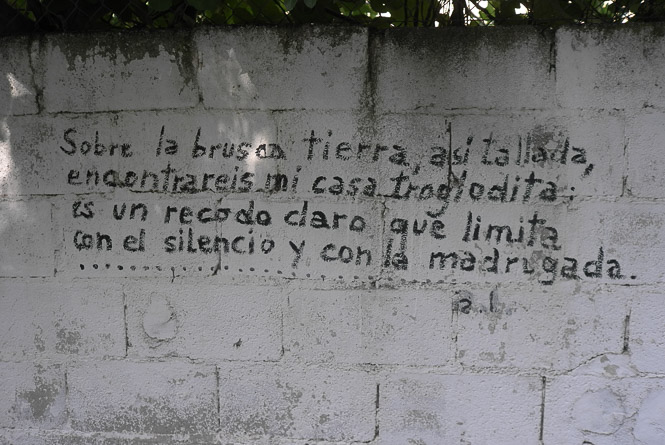 Sobre la brusca tierra, así tallada,
encontrareis mi casa troglodita:
es un recodo claro que limita
con el silencio y con la madrugada.
a.l.